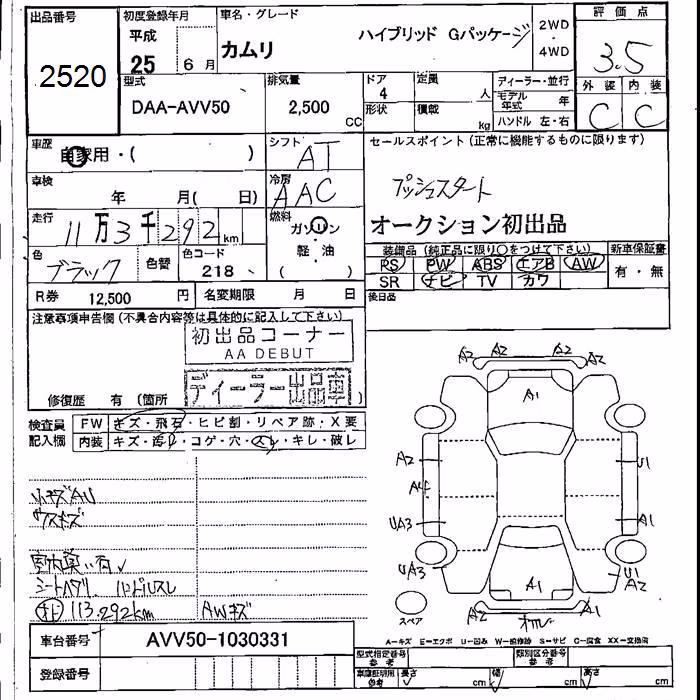 出品番号
2520
初度登録年月
平成
25 6月
車名・グレード
カムリ ハイブリッド Gパッケージ
2WD
・
4WD
評価点
3.5
型式
DAA-AVV50
排気量
2,500 CC
ドア
4
形状
定員 人
積載 kg
ディーラー・並行
モデル年式 年
ハンドル 左・右
外装 内装
C C
車歴
自家用・( )
シフト
AT
セールスポイント(正常に機能するものに限ります)
プッシュスタート
オークション初出品
車検
年 月(日)
冷房
AAC
走行
11万3千292km
燃料
ガソリン
・
軽・油
( )
色
ブラック
色替
色コード
218
装備品(純正品に限り○をつけて下さい)
PS PW ABS エアB AW
SR ナビ TV カワ
新車保証書
有・無
R券 12,500 円
名変期限 月 日
後日品
注意事項申告欄(不具合内容等は具体的に記入して下さい)
初出品コーナー
AA DEBUT
ディーラー出品車
修復歴 有(箇所 )
検査員
記入欄
FW キズ・飛石・ヒビ割・リペア跡・X要
内装 キズ・汚れ・コゲ・穴・スレ・キレ・破レ
小キズAU
ウスキズ
シートヘタリ ハンドルスレ
113,292km AWキズ
A2 A2 A2 A2
A1
A2 U1
UA3 A1
UA3 U1
A2
A1
A2 A2
スペア
A-キズ E-エクボ U-凹み W-補修跡 S-サビ C-腐食 XX-交換済
車台番号 AVV50-1030331
登録番号
型式指定番号
参考
類別区分番号
参考
車庫証明用
参考
長さ cm 幅 cm 高さ cm